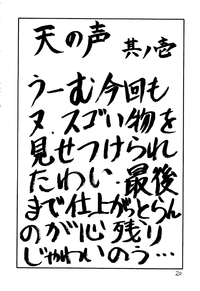 天の声 其ノ壱
うーむ今回も
ヌ、スゴい物を
見せつけられ
たわい・最後
まで仕上がっとらん
のが心残り
じゃわいのう…
20